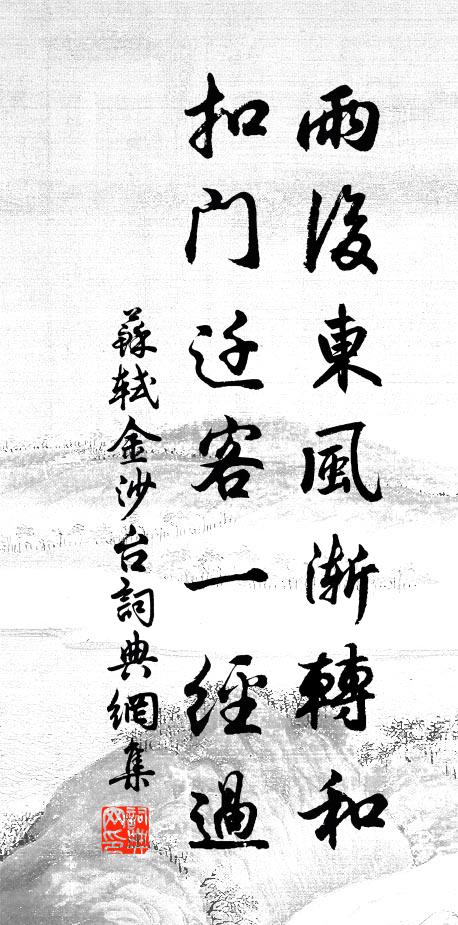 雨後東風漸轉和
扣门迁客一經過
蘇軾金沙台詞典網集